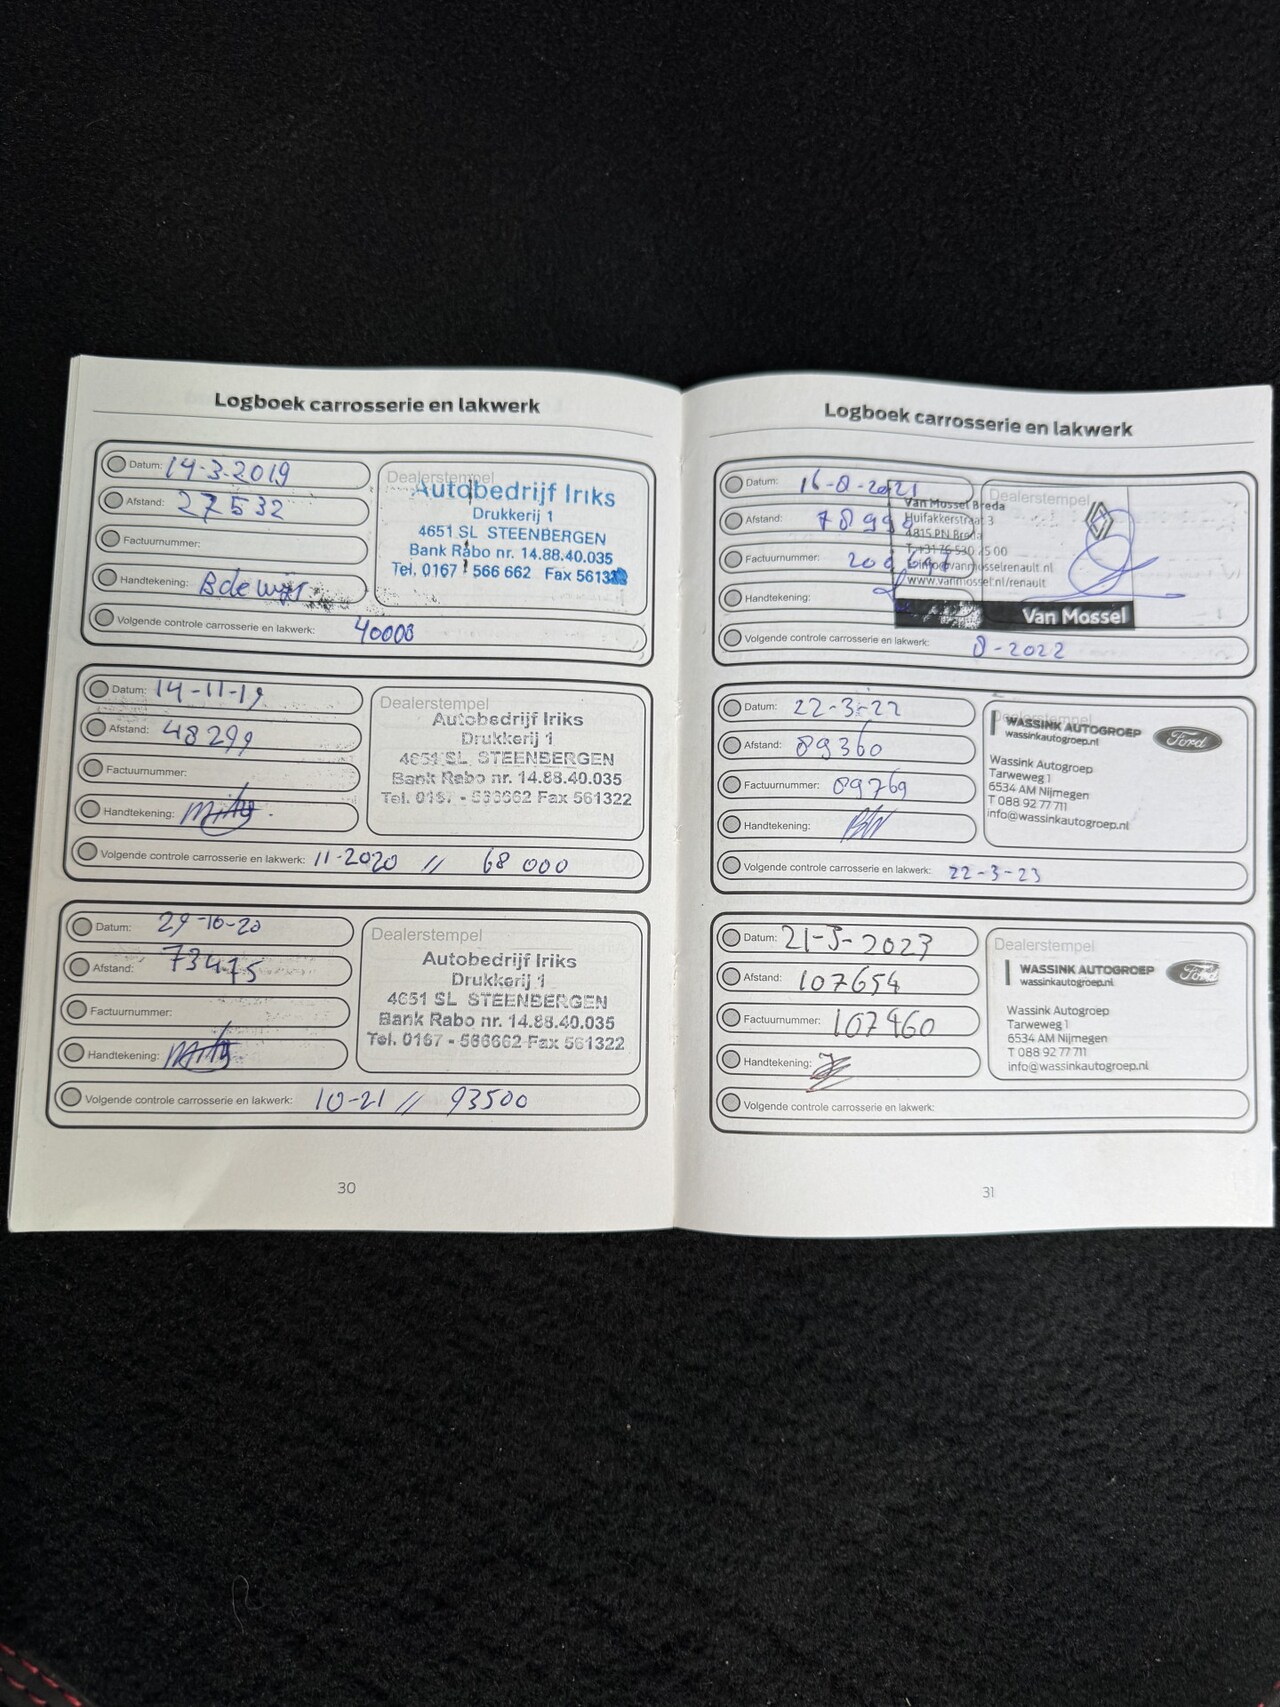 Logboek carrosserie en lakwerk
Datum: 14-3-2019
Afstand: 27532
Factuurnummer:
Handtekening: Bdewijs
Volgende controle carrosserie en lakwerk: 40000
Dealerstempel
Autobedrijf Iriks
Drukkerij 1
4651 SL STEENBERGEN
Bank Rabo nr. 14.88.40.035
Tel. 0167 566 662 Fax 561322
Datum: 14-11-19
Afstand: 48299
Factuurnummer:
Handtekening:
Volgende controle carrosserie en lakwerk: 11-2020 // 68 000
Dealerstempel
Autobedrijf Iriks
Drukkerij 1
4651 SL STEENBERGEN
Bank Rabo nr. 14.88.40.035
Tel. 0167 - 566662 Fax 561322
Datum: 29-10-20
Afstand: 73475
Factuurnummer:
Handtekening:
Volgende controle carrosserie en lakwerk: 10-21 // 93500
Dealerstempel
Autobedrijf Iriks
Drukkerij 1
4651 SL STEENBERGEN
Bank Rabo nr. 14.88.40.035
Tel. 0167 - 566662 Fax 561322
30
Logboek carrosserie en lakwerk
Datum: 16-8-2021
Afstand: 78998
Factuurnummer:
Handtekening:
Volgende controle carrosserie en lakwerk: 8-2022
Dealerstempel
Van Mossel Breda
4815 PN Breda
www.vanmossel.nl/renault
Van Mossel
Datum: 22-3-22
Afstand: 89360
Factuurnummer: 89769
Handtekening:
Volgende controle carrosserie en lakwerk: 22-3-23
Dealerstempel
WASSINK AUTOGROEP
wassinkautogroep.nl
Ford
Wassink Autogroep
Tarweweg 1
6534 AM Nijmegen
T 088 92 77 711
info@wassinkautogroep.nl
Datum: 21-3-2023
Afstand: 107654
Factuurnummer: 107460
Handtekening:
Volgende controle carrosserie en lakwerk:
Dealerstempel
WASSINK AUTOGROEP
wassinkautogroep.nl
Ford
Wassink Autogroep
Tarweweg 1
6534 AM Nijmegen
T 088 92 77 711
info@wassinkautogroep.nl
31